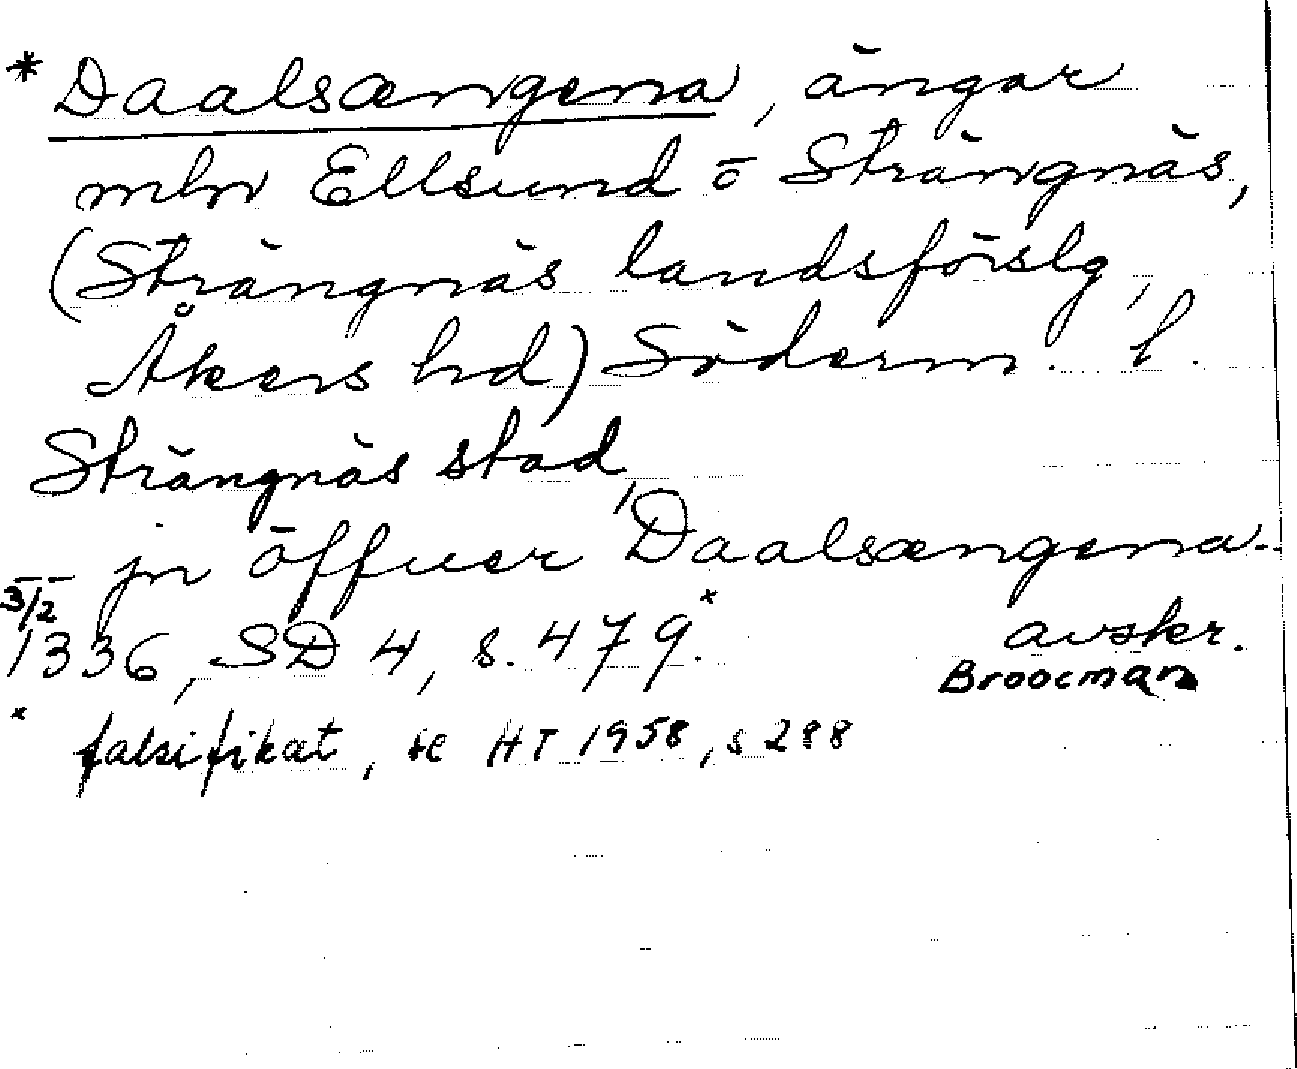 * Daalsængena, ängar
mln Ellsund o Strängnäs,
(Strängnäs landsförslg,
Åkers hd) Söderm. l.
Strängnäs stad,
jn öffuer Daalsængena --
3/2
1336, SD 4, s. 479.x avskr.
Broocman
x falsifikat, se HT 1958, s 288